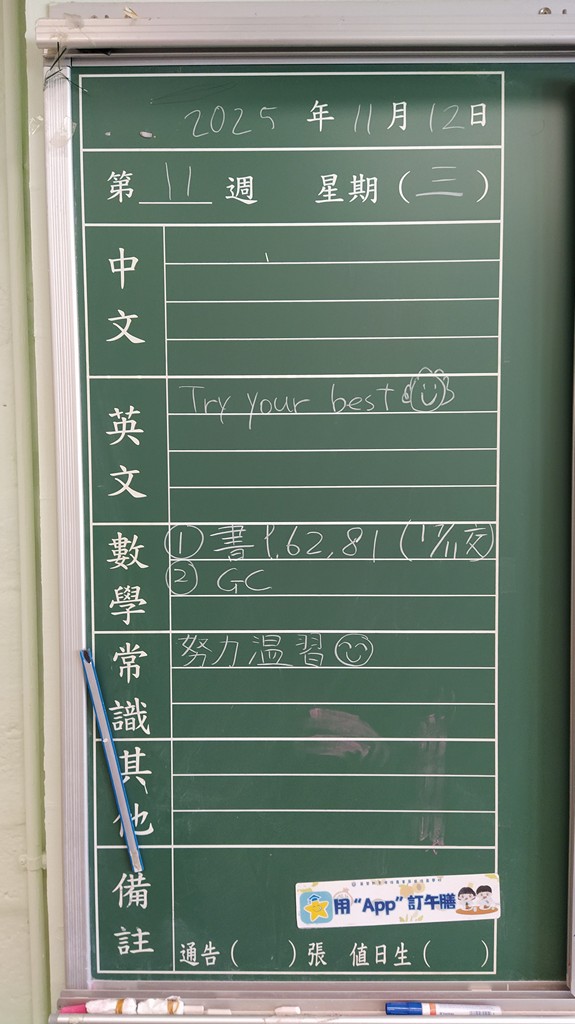 2025 年 11 月 12 日
第 11 週 星期 (三)
中文
英文 Try your best
數學 ① 書 P.62, 81 (17/11交)
② GC
常識 努力温習
其他
備註
用“App”訂午膳
通告( )張 值日生( )